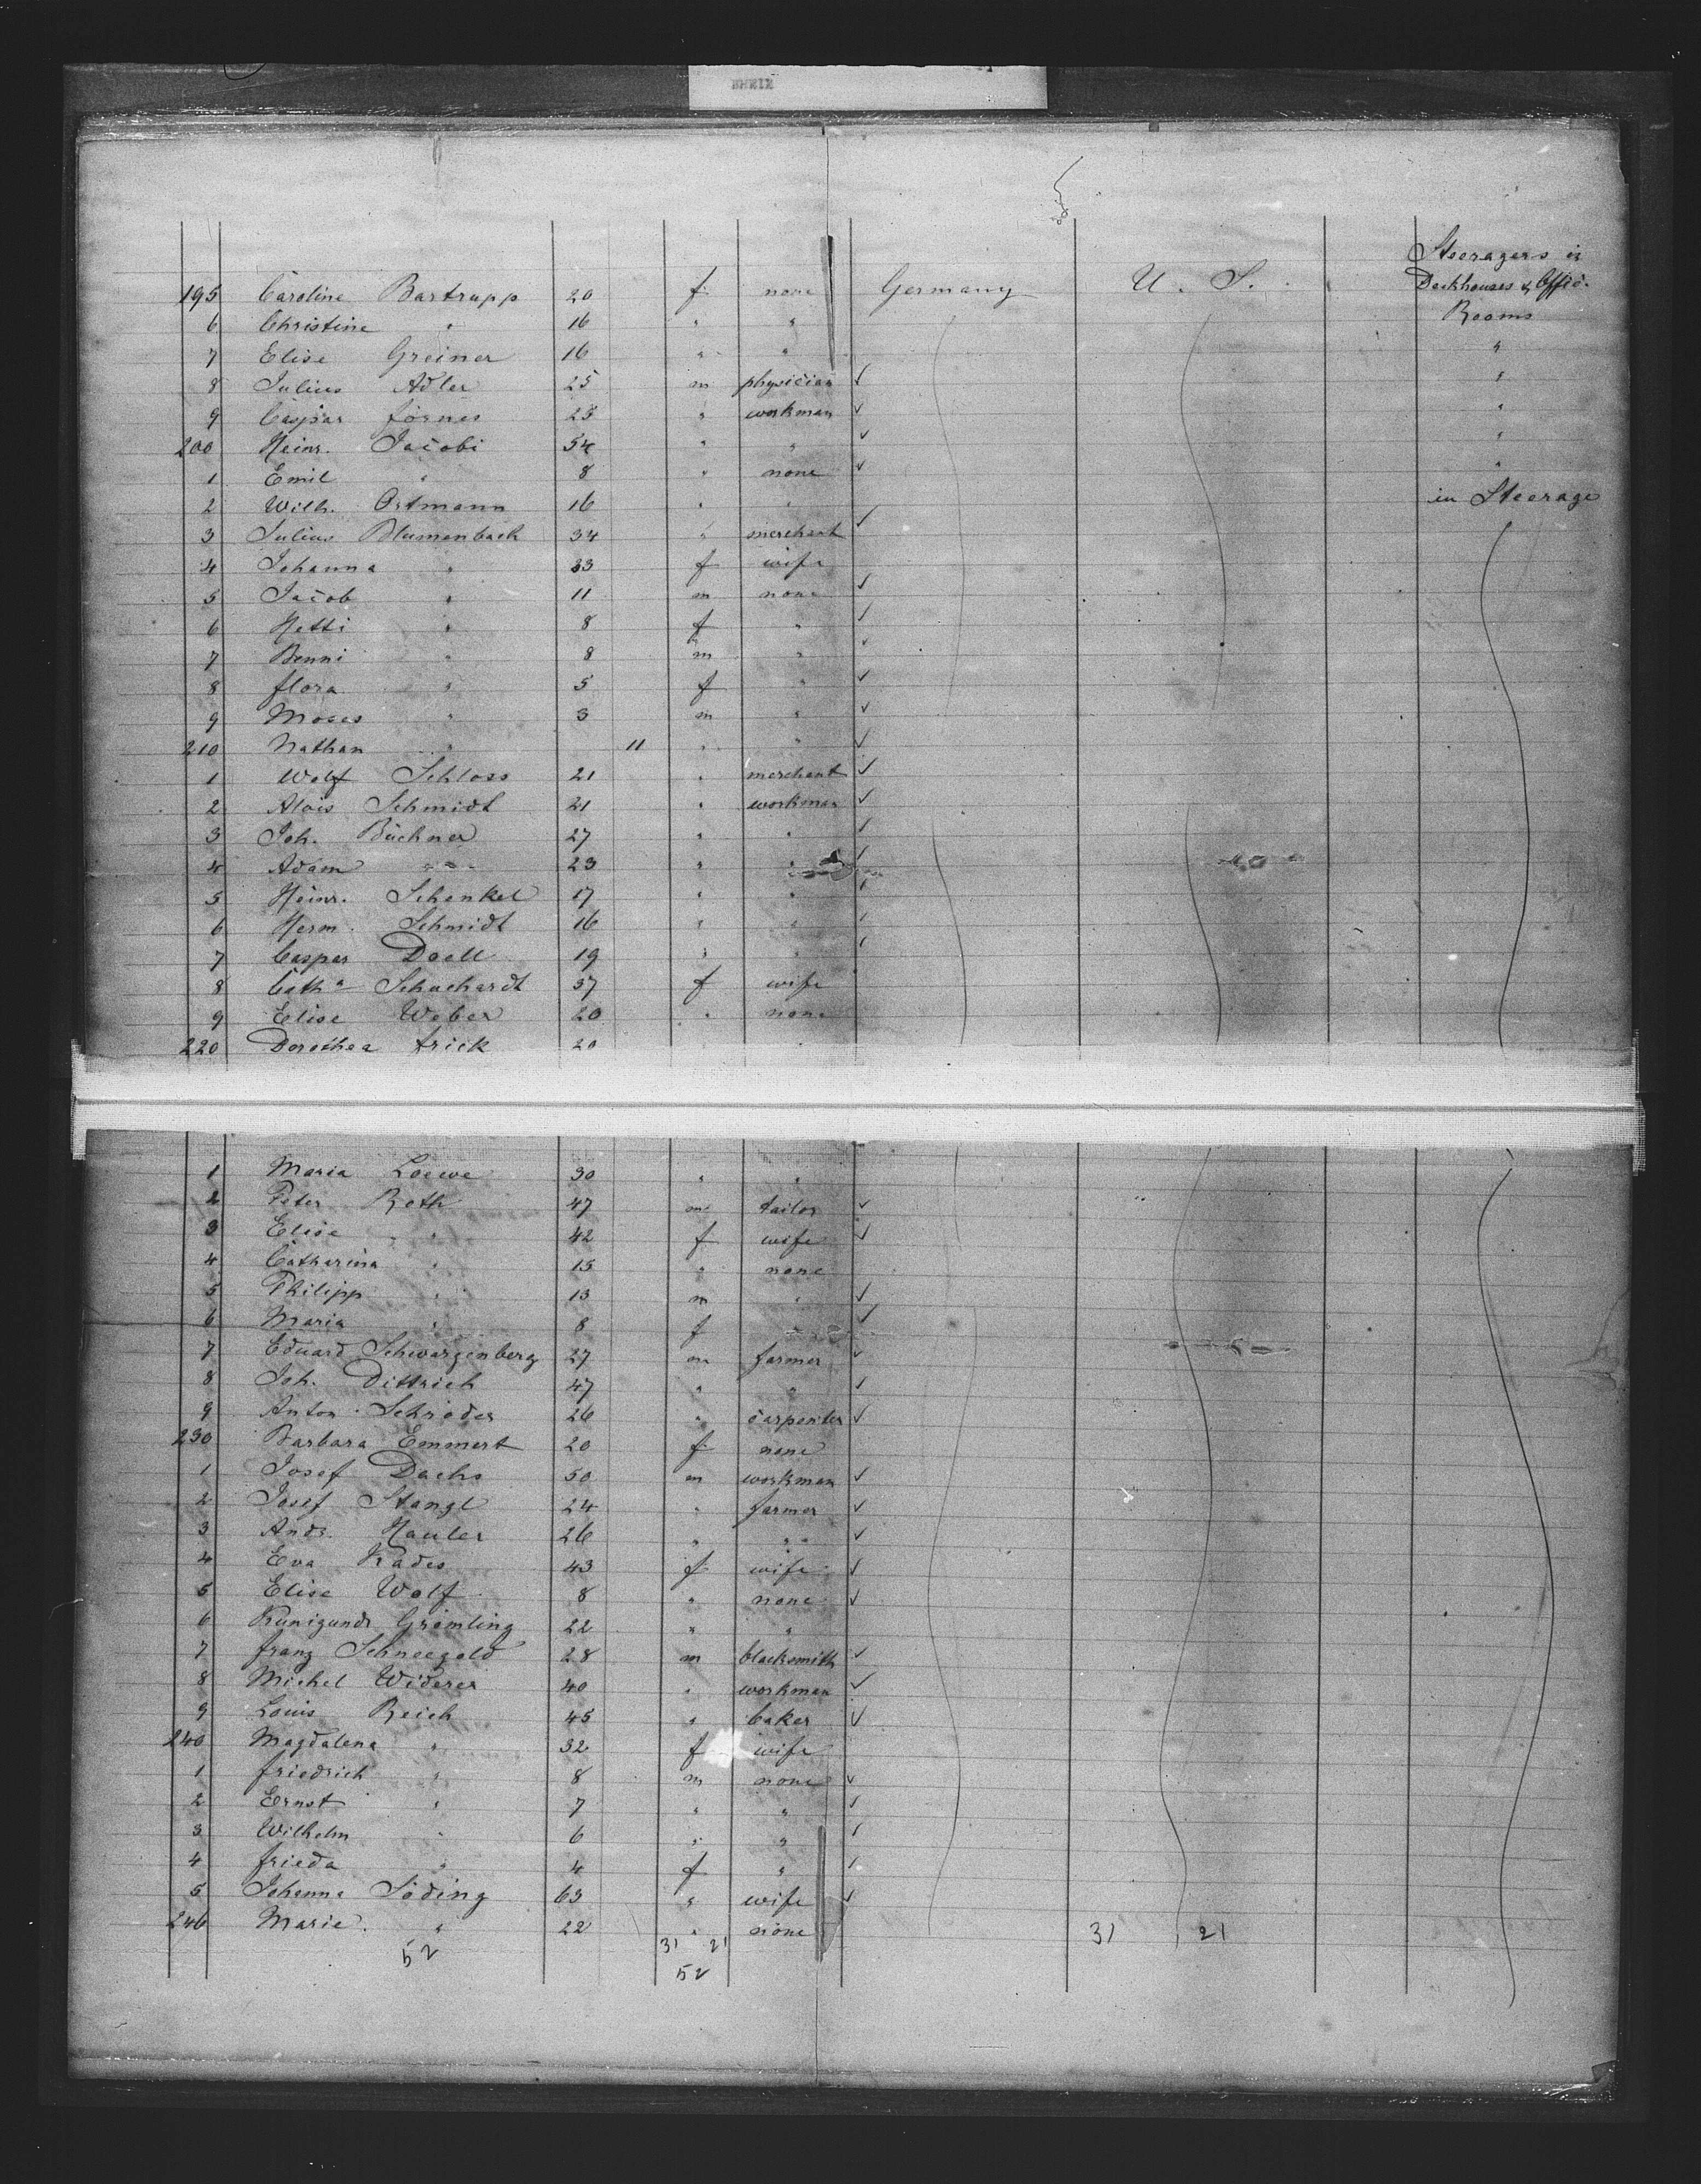 Steeragers in
195 Caroline Bartrupp 20 f none Germany U. S. Deckhouses & Offic.
6 Christine " 16 " " Rooms
7 Elise Greiner 16 " " "
8 Julius Adler 25 m physician ✓ "
9 Caspar Förnes 25 " workman ✓ "
200 Heinr. Jacobi 54 " " ✓ "
1 Emil " 8 " none ✓ "
2 Wilh. Ortmann 16 " " in Steerage
3 Julius Blumenbach 34 " merchant ✓
4 Johanna " 33 f wife
5 Jacob " 11 m none ✓
6 Hetti " 8 f " ✓
7 Benni " 8 m " ✓
8 Flora " 5 f " ✓
9 Moses " 3 m " ✓
210 Nathan " 11 " " ✓
1 Wolf Schloss 21 " merchant ✓
2 Alois Schmidt 21 " workman ✓
3 Joh. Büchner 27 " " ✓
4 Adam " 23 " " ✓
5 Heinr. Schenkel 17 " " ✓
6 Herm. Schmidt 16 " " ✓
7 Caspar Doell 19 " " ✓
8 Catha Schuchardt 37 f wife
9 Elise Weber 20 " none
220 Dorothea Frick 20 " "
1 Maria Loewe 30 " "
2 Peter Roth 47 m tailor ✓
3 Elise " 42 f wife ✓
4 Catharina " 15 " none
5 Philipp " 13 m " ✓
6 Maria " 8 f " ✓
7 Eduard Schwarzenberg 27 m farmer ✓
8 Joh. Dittrich 47 " " ✓
9 Anton Schröder 26 " carpenter ✓
230 Barbara Emmert 20 f none
1 Josef Dachs 50 m workman ✓
2 Josef Stangl 24 " farmer ✓
3 Andr. Hauler 26 " " ✓
4 Eva Kades 43 f wife ✓
5 Elise Wolf 8 " none ✓
6 Kunigunde Grömling 22 " "
7 Franz Schneegold 28 m blacksmith ✓
8 Michel Widerer 40 " workman ✓
9 Louis Reich 45 " baker ✓
240 Magdalena " 32 f wife
1 Friedrich " 8 m none ✓
2 Ernst " 7 " " ✓
3 Wilhelm " 6 " " ✓
4 Frieda " 4 f " ✓
5 Johanna Söding 63 " wife ✓
246 Marie " 22 " none 31 21
52 31 21
52